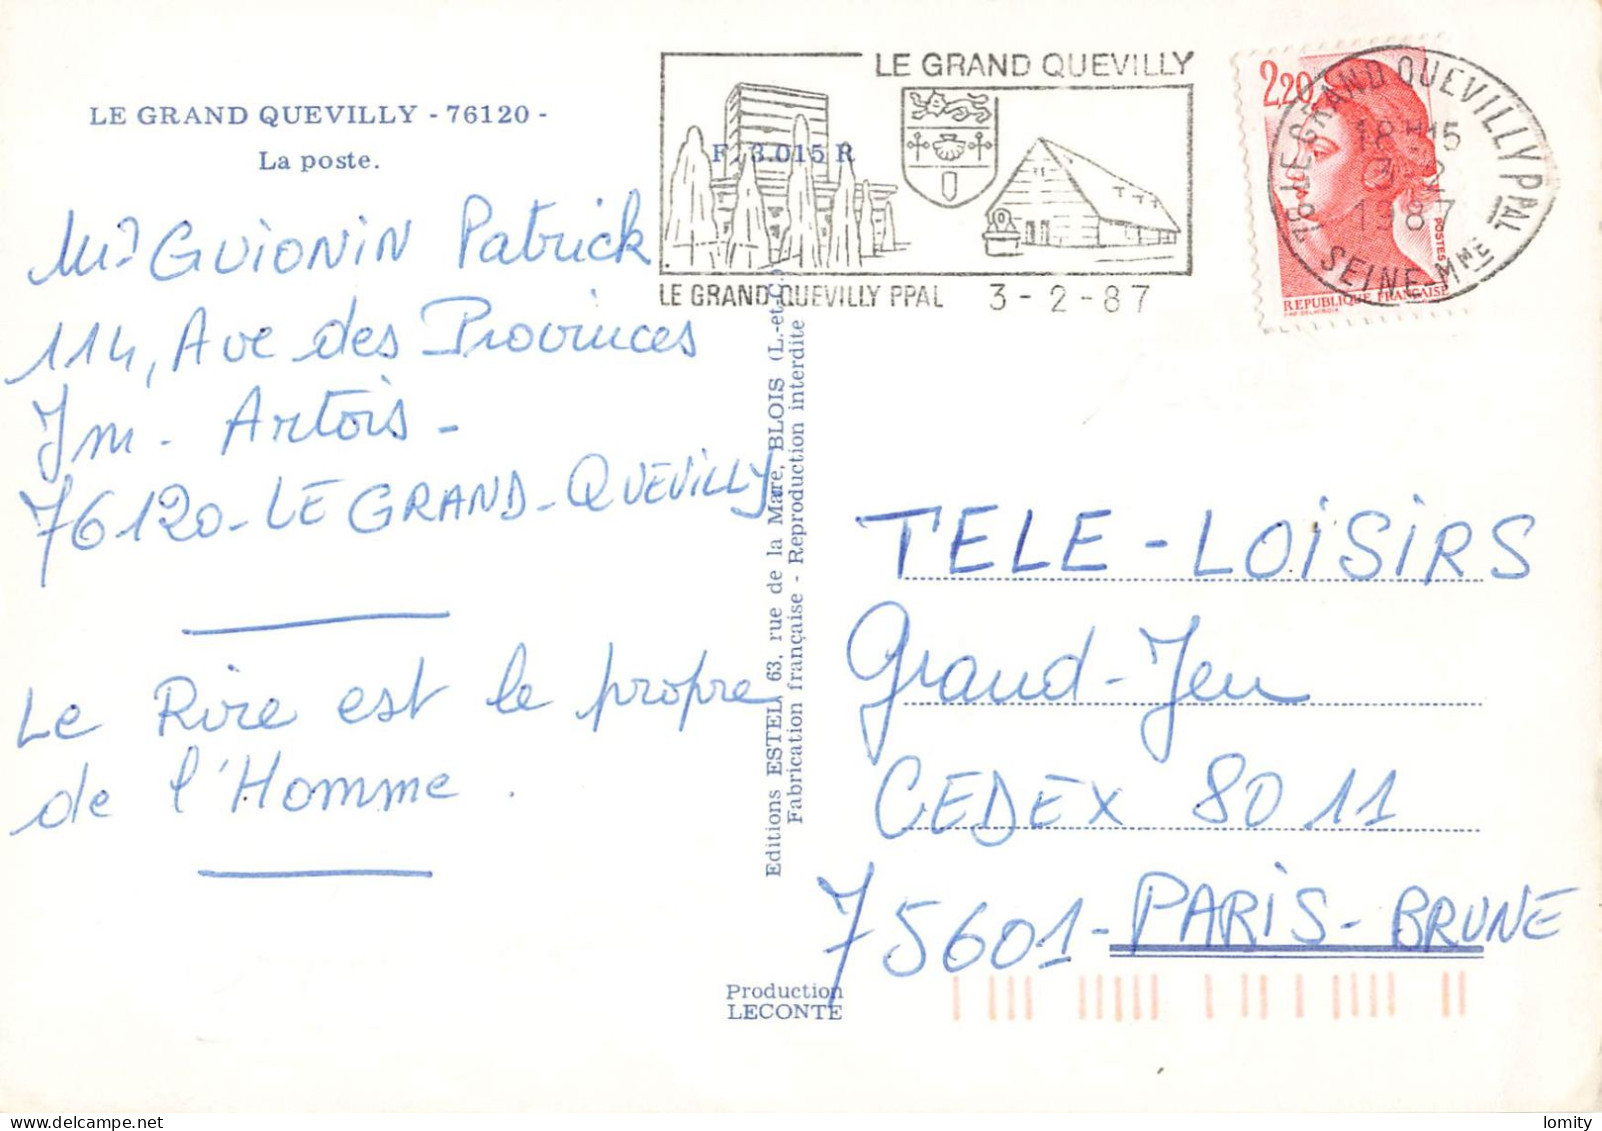 LE GRAND QUEVILLY - 76120 -
La poste.
LE GRAND QUEVILLY
F. 3.015 R
LE GRAND QUEVILLY PPAL 3-2-87
2,20
POSTES
REPUBLIQUE FRANÇAISE
76 LE GRAND QUEVILLY PPAL
18H15
3-2
1987
SEINE-MME
Mr GUIONIN Patrick
114, Ave des Provinces
Im. Artois -
76120 - LE GRAND-QUEVILLY
Le Rire est le propre
de l'Homme.
Editions ESTEL, 63, rue de la Mare, BLOIS (L.-et-C.)
Fabrication française - Reproduction interdite
TELE-LOISIRS
Grand-Jeu
CEDEX 8011
75601 - PARIS-BRUNE
Production
LECONTE
lomity